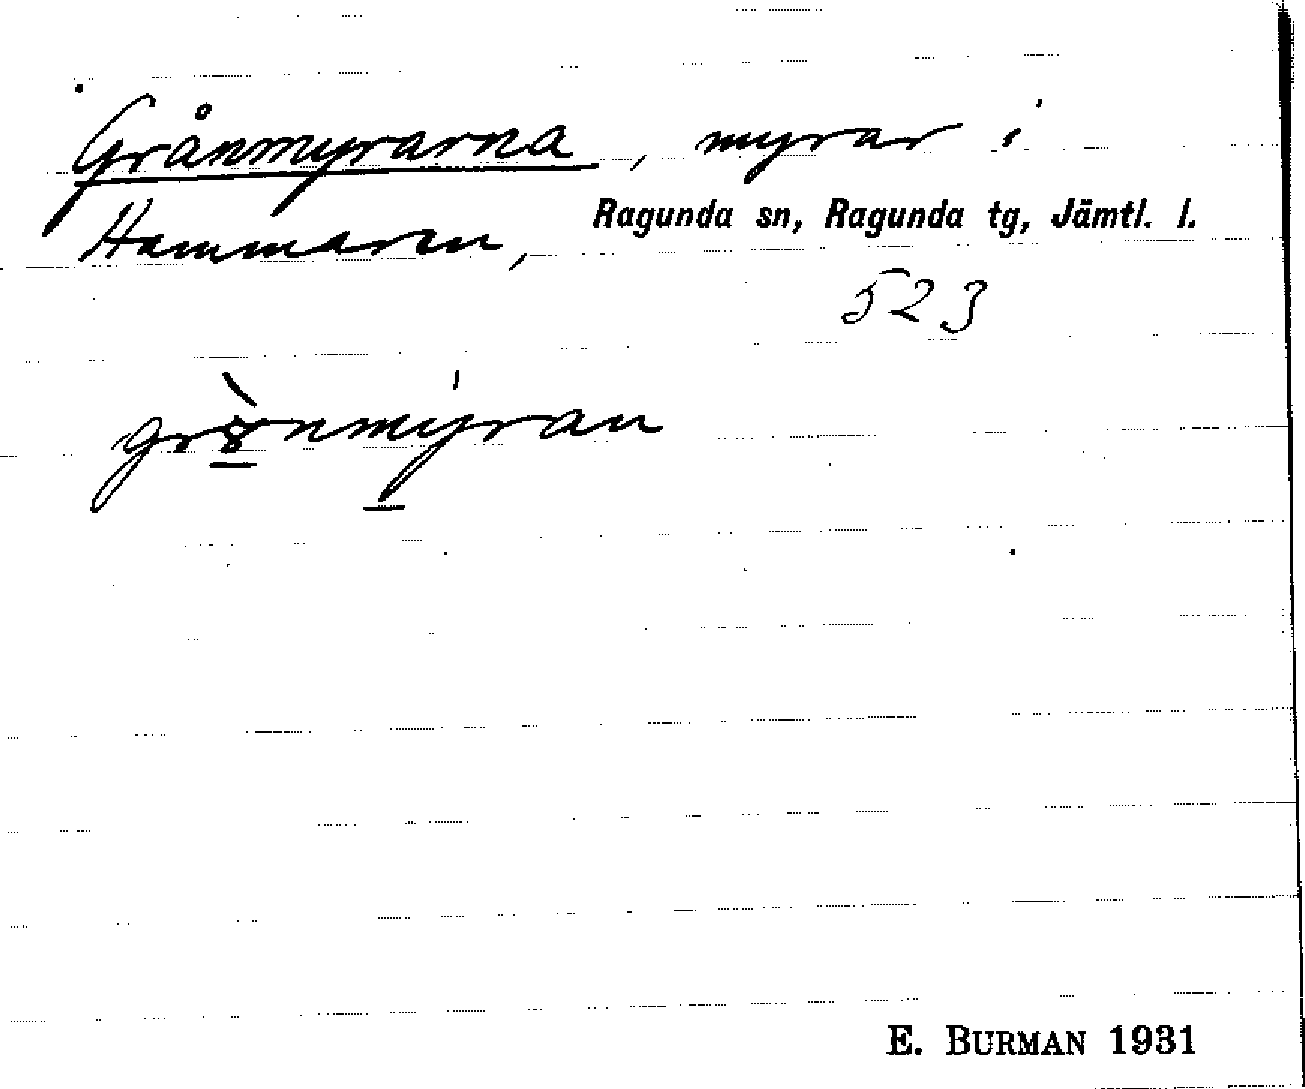 Grånmyrarna, myrar i
Hammaren, Ragunda sn, Ragunda tg, Jämtl. l.
523
grò̱nmý̱ran
E. BURMAN 1931